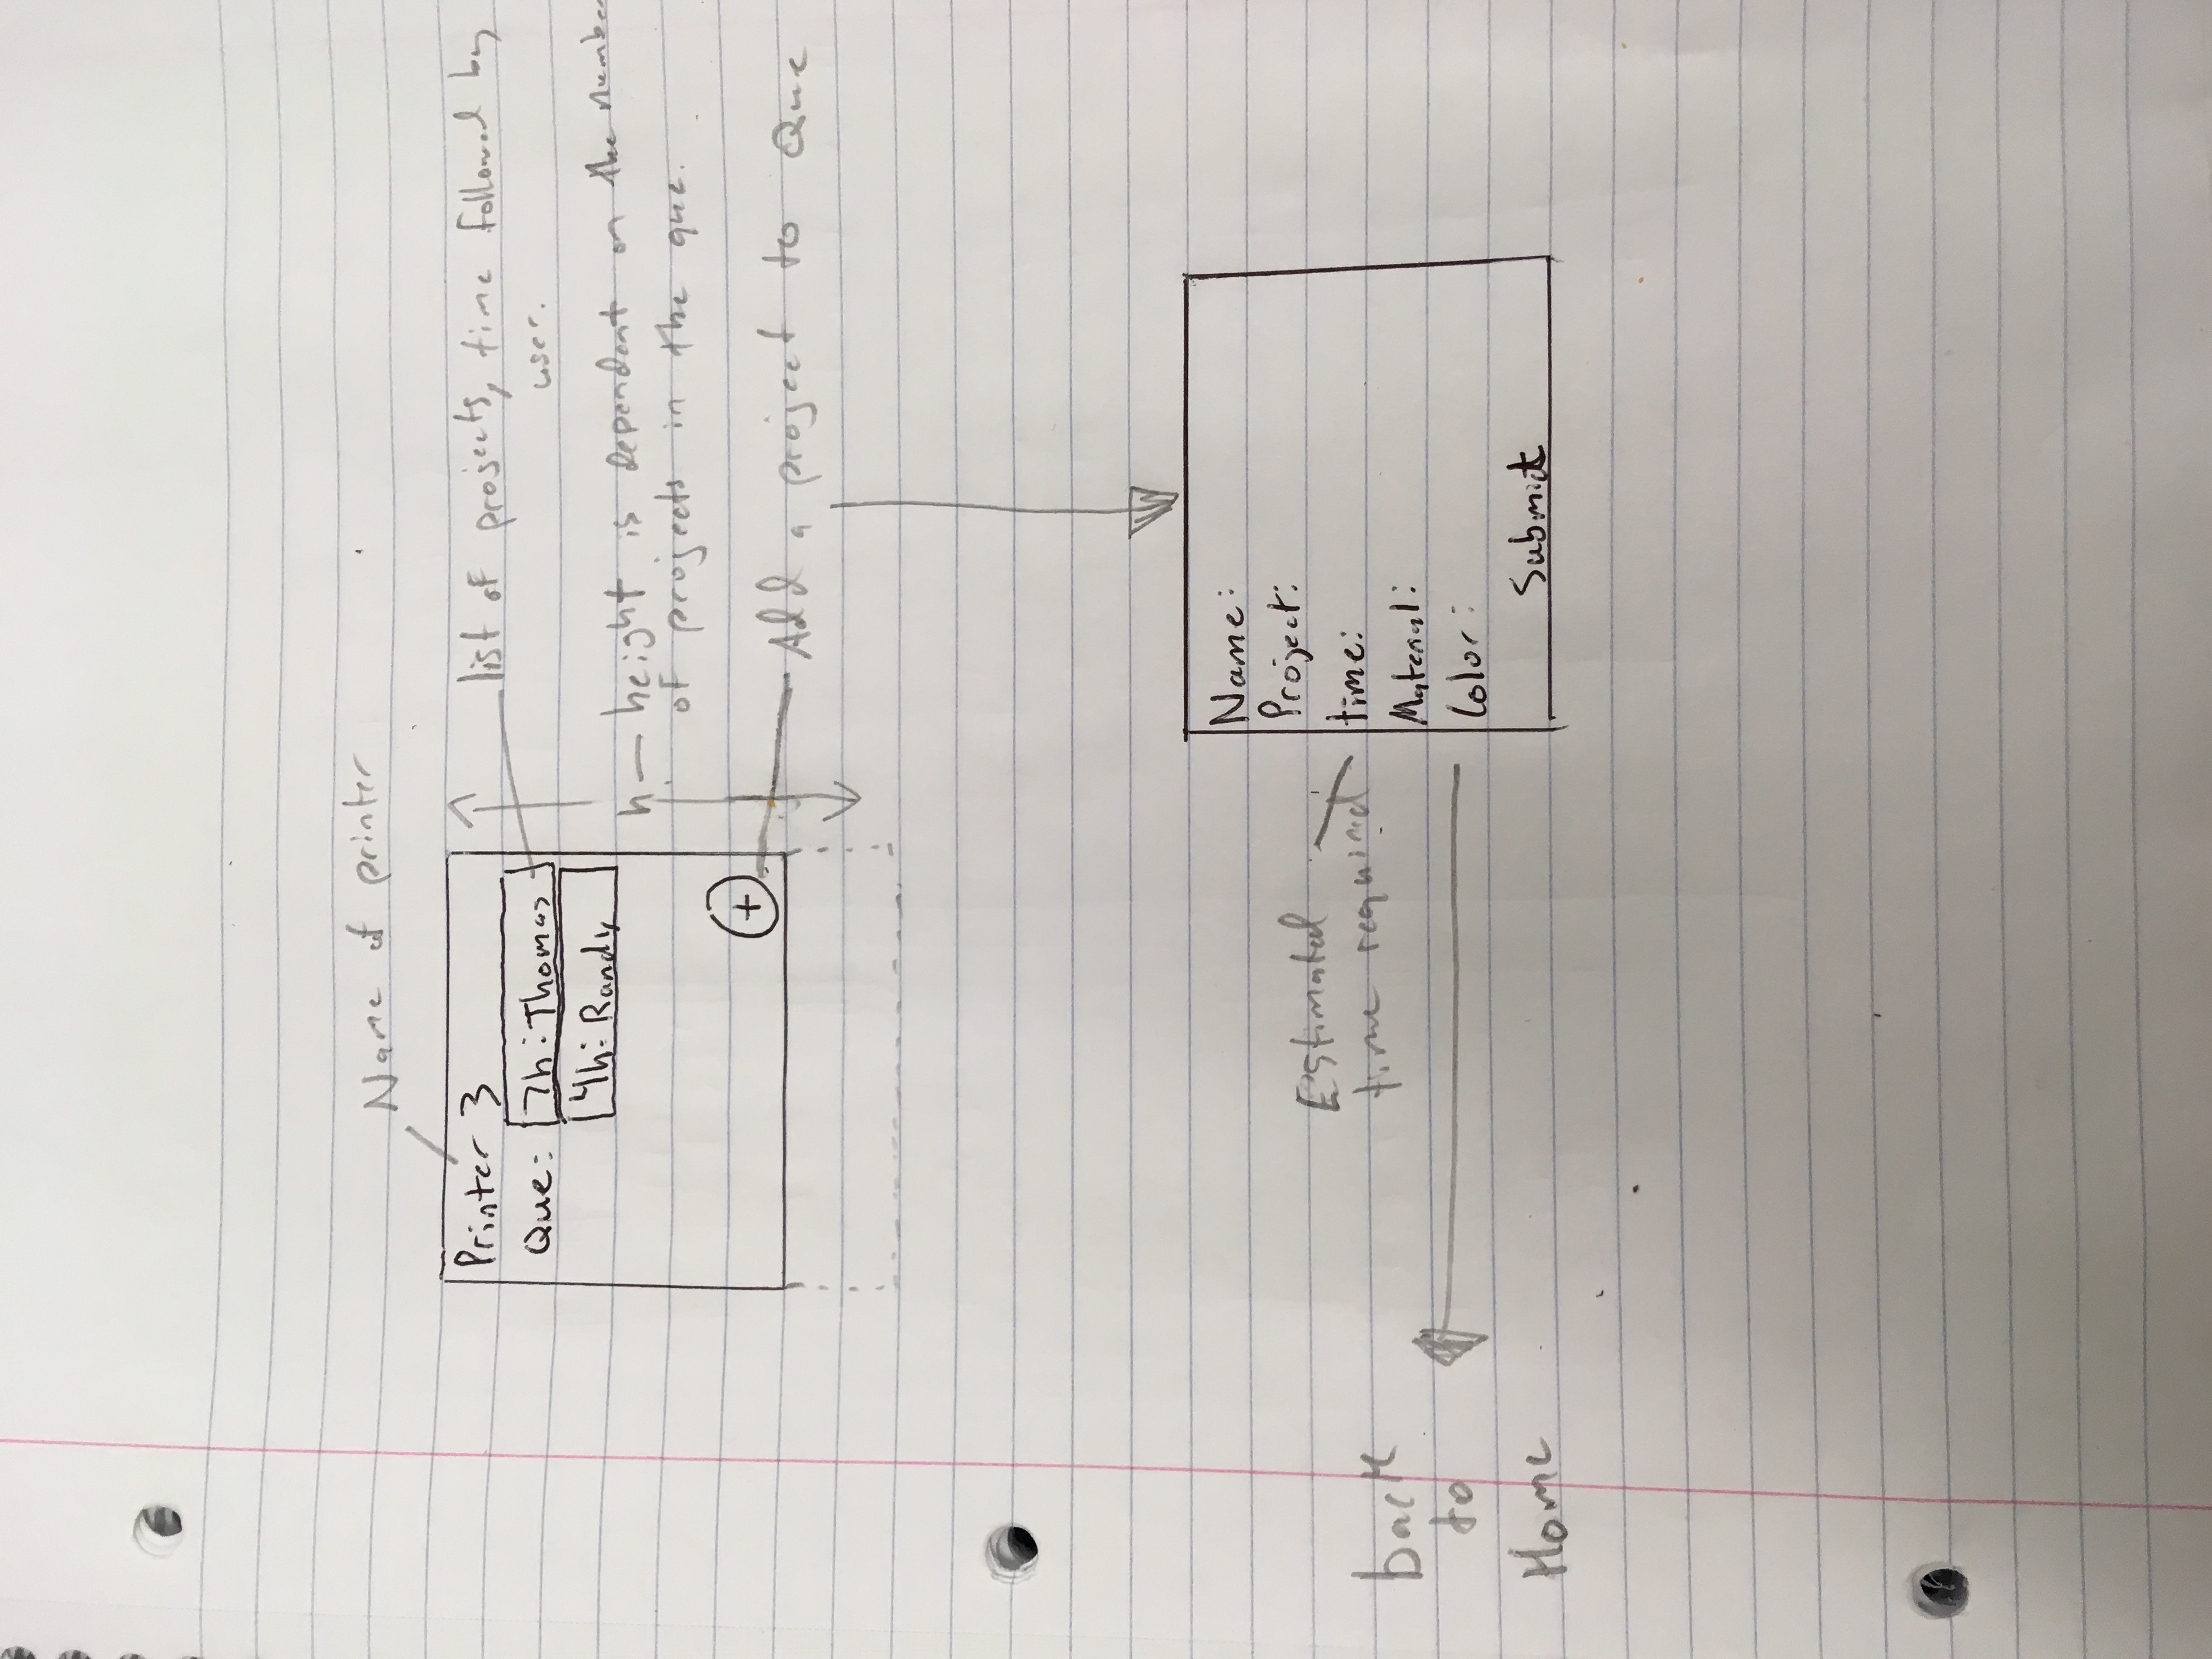 Name of printer
Printer 3
Que: 7h: Thomas
4h: Randy
list of projects, time followed by
user.
h — height is dependent on the number
of projects in the que.
+
Add a project to Que
Name:
Project:
time:
Material:
Color:
Submit
Estimated
time required
back
to
Home